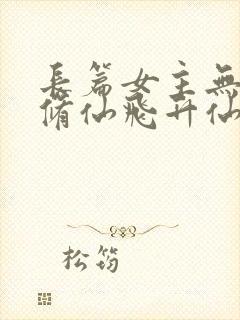 長篇女主無
脩仙飛升仙
松筠